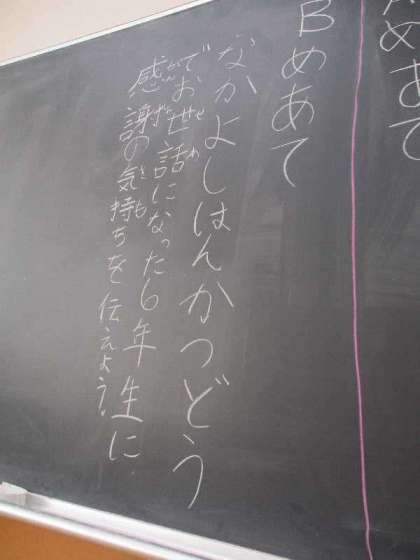 めあて
Bめあて
なかよしはんかつどう
でお世話になった6年生に
感謝の気持ちを伝えよう!